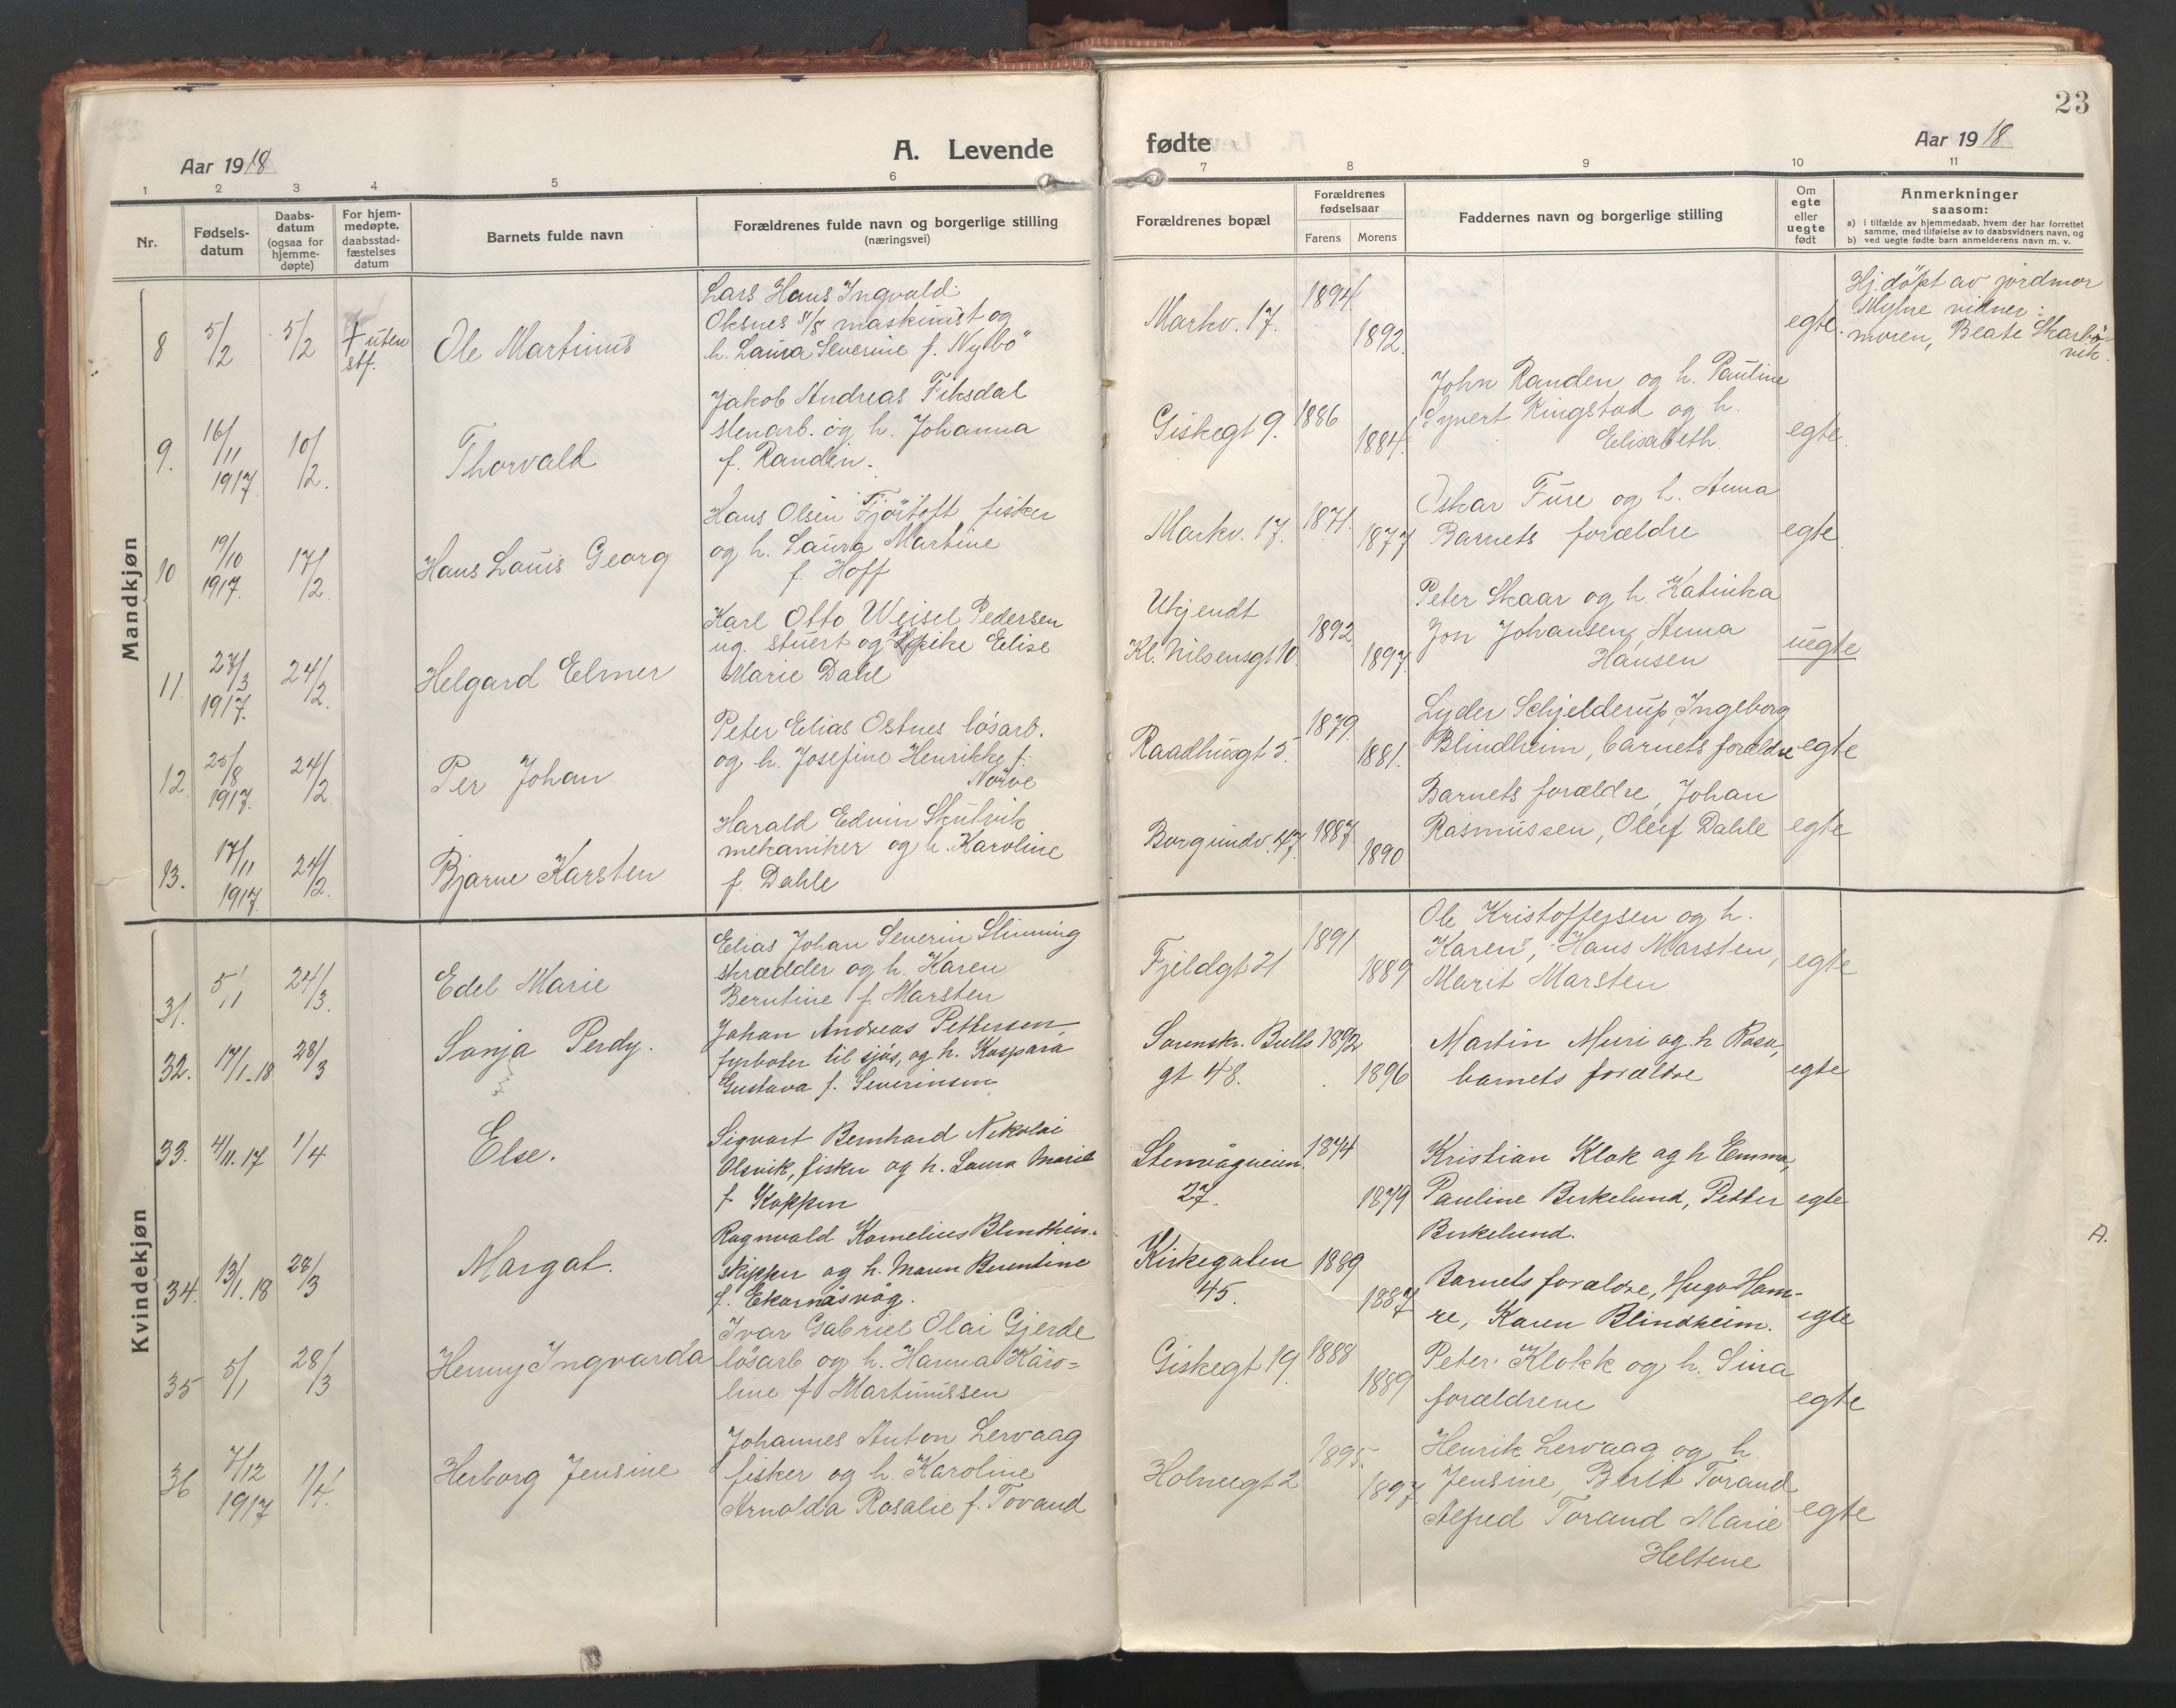 23
Aar 1918
A. Levende
fødte
Aar 1918
1 2 3 4 5 6 7 8 9 10 11
Nr.
Fødsels-
datum
Daabs-
datum
(ogsaa for
hjemme-
døpte)
For hjem-
medøpte,
daabsstad-
fæstelses
datum
Barnets fulde navn
Forældrenes fulde navn og borgerlige stilling
(næringsvei)
Forældrenes bopæl
Forældrenes
fødselsaar
Farens Morens
Faddernes navn og borgerlige stilling
Om
egte
eller
uegte
født
Anmerkninger
saasom:
a) i tilfælde av hjemmedaab, hvem der har forrettet
samme, med tilføielse av to daabsvidners navn, og
b) ved uegte fødte barn anmelderens navn m. v.
Mandkjøn
8 5/2 5/2 † uten stf. Ole Martinus
Lars Hans Ingvald
Oksnes s/s maskinist og
h. Laura Severine f. Nybö
Markv. 17. 1894 1892. egte.
Hj.döpt av jordmor
Myhre vidner:
moren, Beate Skarbö-
vik.
9. 16/11 1917. 10/2. Thorvald
Jakob Andreas Fiksdal
stenarb. og h. Johanna
f. Randen.
Giskegt 9. 1886 1884.
John Randen og h. Pauline
Syvert Ringstad og h.
Elisabeth egte.
10 19/10 1917. 17/2. Hans Louis Georg
Hans Olsen Fjörtoft fisker
og h. Laura Martine
f. Hoff
Markv. 17. 1871. 1877
Oskar Fure og h. Anna
Barnets forældre egte
11. 27/3 1917. 24/2. Helgard Elmer
Karl Otto Weisel Pedersen
ug. stuert og pike Elise
Marie Dahl
Ukjendt
Kl. Nilsensgt 10. 1892 1897.
Peter Skaar og h. Katinka
Jon Johansen, Anna
Hansen uegte
12. 25/8 1917. 24/2. Per Johan
Peter Elias Ostnes lösarb.
og h. Josefine Henrikke f.
Nörve
Raadhusgt 5. 1879. 1881.
Lyder Schjelderup, Ingeborg
Blindheim, barnets forældre egte
13. 17/11 1917. 24/2. Bjarne Karsten
Harald Edvin Skutvik
mekaniker og h. Karoline
f. Dahle
Borgundv. 47. 1887 1890
Barnets forældre, Johan
Rasmussen, Oleif Dahle egte
Kvindekjøn
31. 5/1 24/3. Edel Marie
Elias Johan Severin Slinning
skrædder og h. Karen
Berntine f. Marsten
Fjeldgt 21 1891 1889
Ole Kristoffersen og h.
Karen, Hans Marsten,
Marit Marsten egte
32. 17/1-18 28/3 Sonja Perdy.
Johan Andreas Pettersen,
fyrböter til sjös, og h. Kaspara
Gustava f. Severinsen
Sorenskr. Bulls
gt 48. 1892 1896
Martin Muri og h Rasa,
barnets forældre egte
33. 4/11.17 1/4 Else.
Sigvart Bernhard Nikolai
Olsvik, fisker og h. Laura Marie
f. Koppen
Stenvågveien
27. 1874 1879
Kristian Klok og h Emma,
Pauline Birkelund, Petter
Birkelund. egte
A.
34. 13/1.18 28/3 Margot.
Ragnvald Kornelius Blindheim
skipper og h. Maren Berentine
f. Ekornåsvåg.
Kirkegaten
45. 1889 1887
Barnets forældre, Hugo Ham-
re, Karen Blindheim. egte
35 5/1 28/3 Henny Ingvarda
Ivar Gabriel Olai Gjerde
lösarb og h. Hanna Karo=
line f. Martinussen
Giskegt 19. 1888 1889
Peter Klokk og h. Sina
forældrene egte
36 7/12 1917 1/4. Herborg Jensine
Johannes Anton Lervaag
fisker og h. Karoline
Arnolda Rosalie f. Tovand
Holmegt 2 1895. 1897
Henrik Lervaag og h.
Jensine, Berit Torand
Alfred Torand Marie
Heltene egte